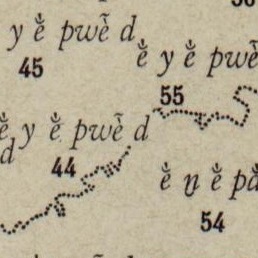 y è̆ pwẽ̀ d
45
è̆ y è̆ pwẽ̀
55
è̆ y è̆ pwẽ̀ d
d
44
è̆ n̮ è̆
54